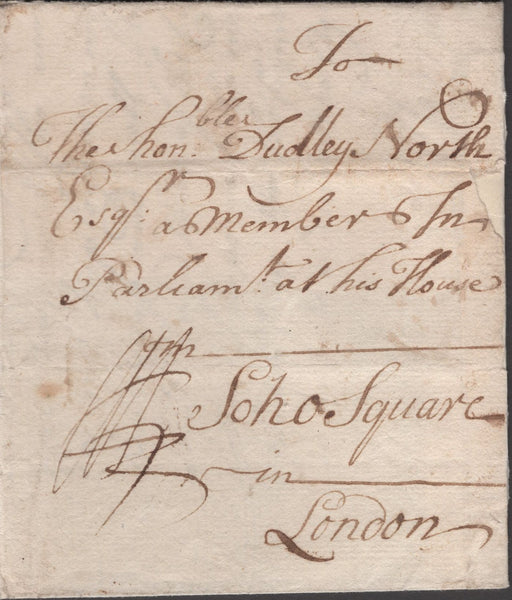 To
The hon.ble Dudley North
Esqr. a Member In
Parliamt. at his House
in
Soho Square
in
London